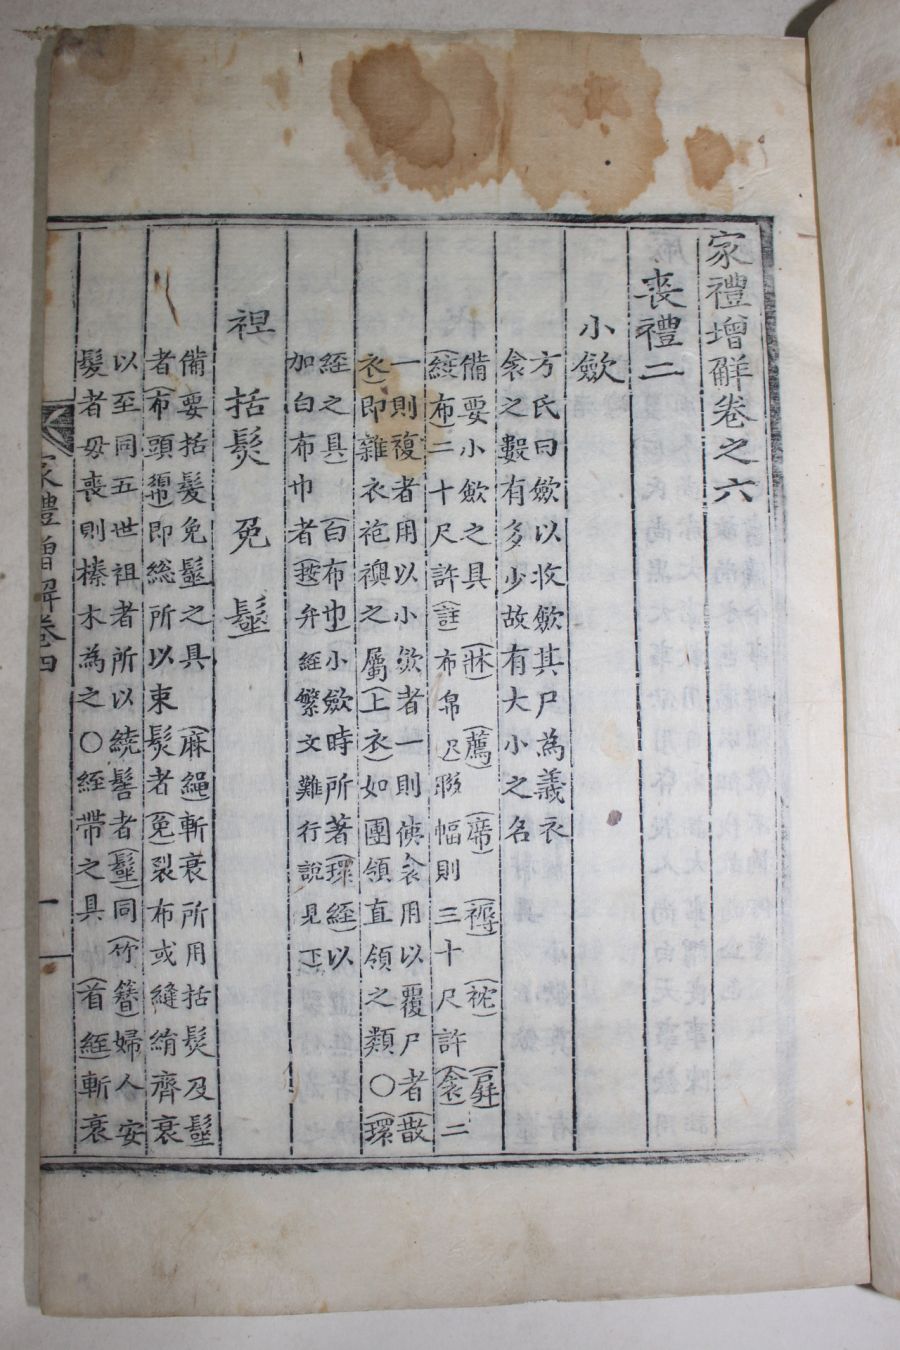 家禮增解卷之六
喪禮二
小歛
方氏曰歛以收歛其尸為義衣
衾之數有多少故有大小之名
備要小歛之具(牀)(薦)(席)(褥)(枕)(屛)
(絞布)二十尺許(註)布帛 幅則三十尺許(衾)二
一則複者用以小歛者一則 衾用以覆尸者(散
衣)即雜衣袍襖之屬(上衣)如團領直領之類〇(環
絰之具)(白布巾)小歛時所著(環絰)以
加白布巾者(按)弁絰繁文難行說見下
袒 括髮 免 髽
備要括髮免髽之具(麻繩)斬衰所用括髮及髽
者(布頭𢄼)即総所以束髮者(免)裂布或縫綃齊衰
以至同五世祖者所以繞髻者(髽)同(竹簪)婦人安
髮者母喪則榛木為之〇絰帶之具(首絰)斬衰
家禮增解卷四
一